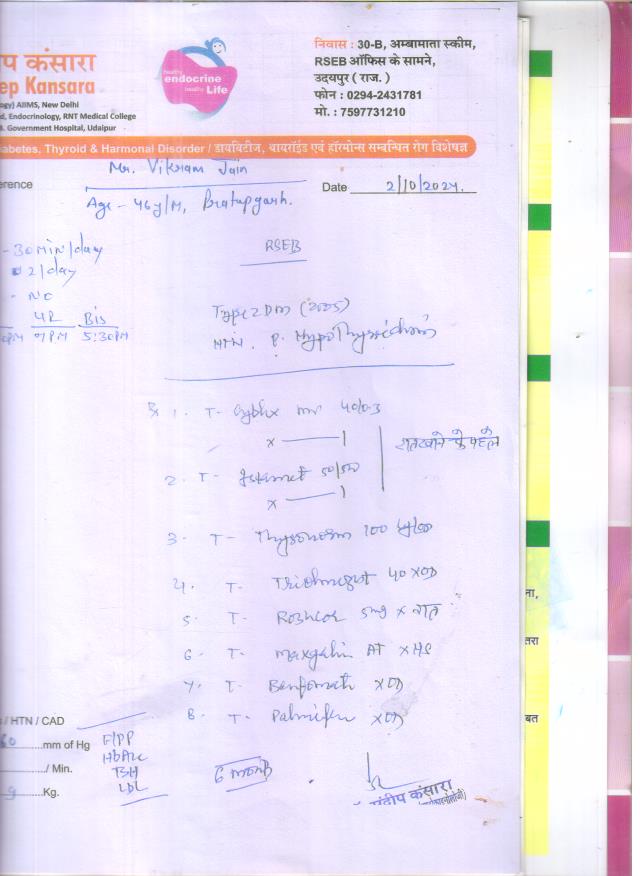 निवास : 30-B, अम्बामाता स्कीम,
RSEB ऑफिस के सामने,
उदयपुर ( राज. )
फोन : 0294-2431781
मो. : 7597731210
प कंसारा
ep Kansara
ogy) AIIMS, New Delhi
d, Endocrinology, RNT Medical College
B. Government Hospital, Udaipur
healthy
endocrine
healthy Life
abetes, Thyroid & Harmonal Disorder / डायबिटीज, थायरॉईड एवं हॉरमोन्स सम्बन्धित रोग विशेषज्ञ
erence
Mr. Vikram Jain
Date 2/10/2024.
Age - 46y/M, Pratapgarh.
RSEB
- 30 min/day
2/day
- NO
UR Bis
PM 9PM 5:30PM
Type 2 DM (2005)
HTN. P. Hypothyroidism
Rx 1. T-
x 1
रात खाने के पहले
2. T- 50/500
x 1
3. T- Thyronorm 100
4. T- 40 x OD
5. T- 5mg x रात
6. T- Maxgalin AT x HS
7. T- x OD
8. T- x OD
/ HTN / CAD
60 mm of Hg
/ Min.
9 Kg.
F/PP
HbA1c
TSH
LDL
6 month
संदीप कंसारा
ना,
तरा
बत